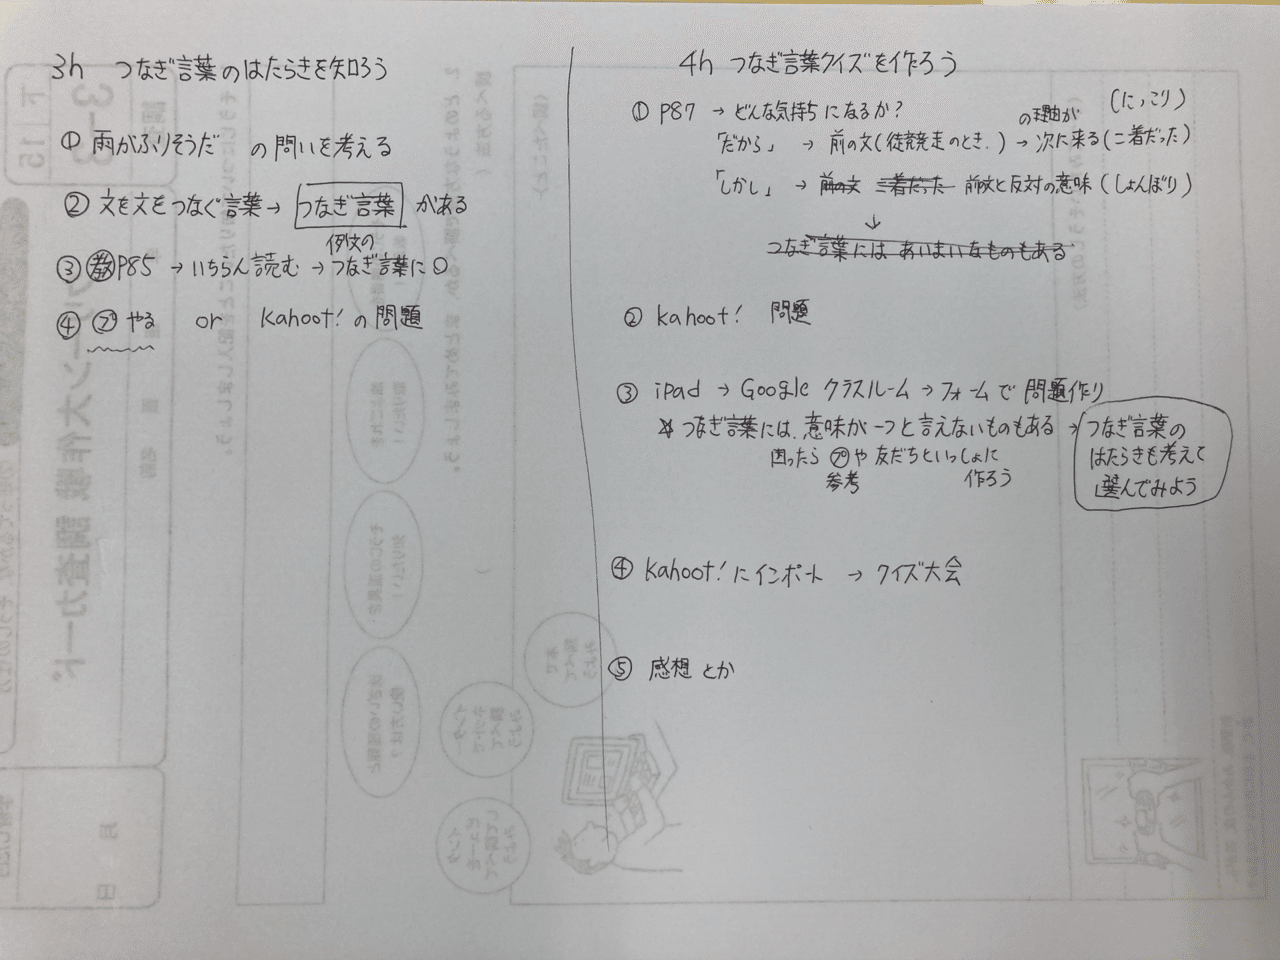 3h つなぎ言葉のはたらきを知ろう
① 雨がふりそうだ の問いを考える
② 文を文をつなぐ言葉→ つなぎ言葉 がある
例文の
③ 教 P85 → いちらん読む → つなぎ言葉に○
④ プ やる or Kahoot! の 問題
4h つなぎ言葉クイズを作ろう
① P87 → どんな気持ちになるか?
の理由が (にっこり)
「だから」 → 前の文(徒競走のとき.) → 次に来る(二着だった)
「しかし」 → 前の文 二着だった 前文と反対の意味(しょんぼり)
↓
つなぎ言葉には あいまいなものもある
② kahoot! 問題
③ iPad → Google クラスルーム → フォームで 問題作り
つなぎ言葉には、意味が一つと言えないものもある →
つなぎ言葉の
はたらきも考えて
選んでみよう
困ったら プ や 友だちといっしょに
参考 作ろう
④ Kahoot! にインポート → クイズ大会
⑤ 感想とか